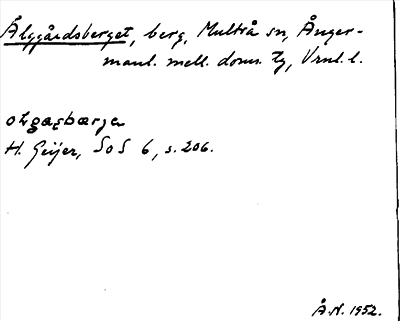 Älggårdsberget, berg, Multrå sn, Ånger-
manl. mell. doms. tg, Vrnl. l.
H. Geijer, SoS 6, s. 206.
Å.N. 1952.